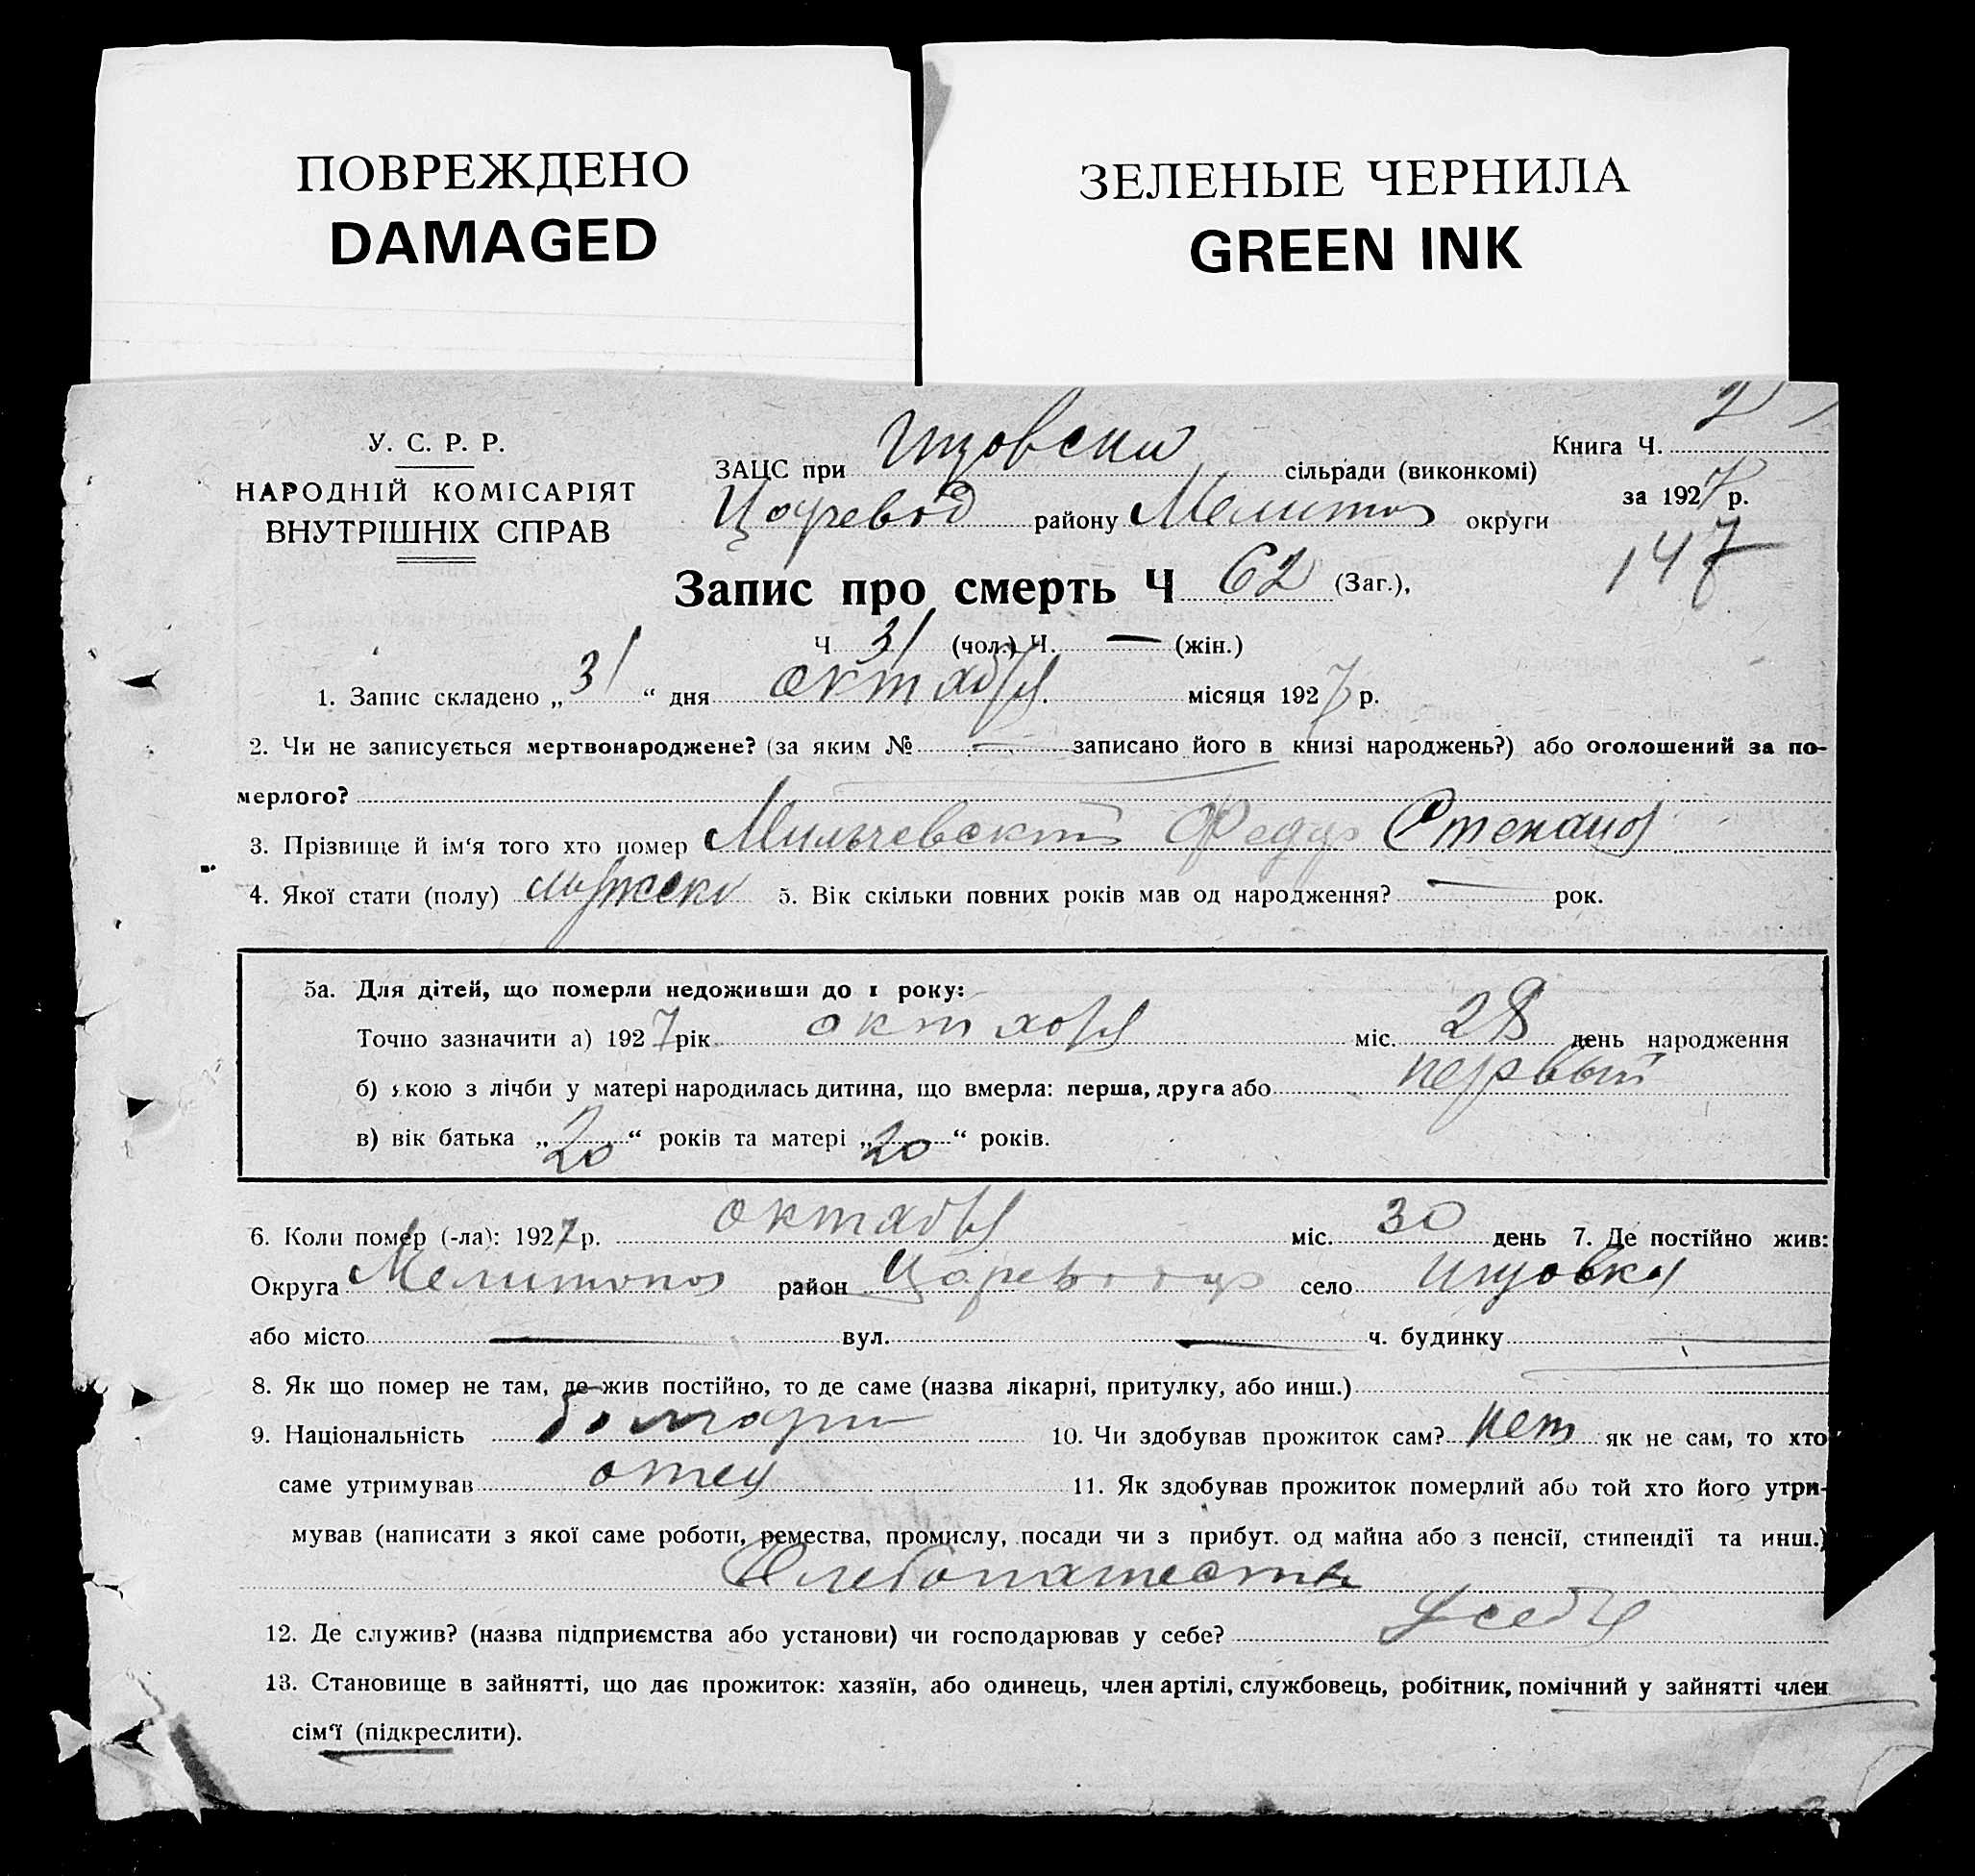 ПОВРЕЖДЕНО
DAMAGED
ЗЕЛЕНЫЕ ЧЕРНИЛА
GREEN INK
У. С. Р. Р.
НАРОДНІЙ КОМІСАРІЯТ
ВНУТРІШНІХ СПРАВ
ЗАЦС при сільради (виконкомі)
Царевод району Мелитоп округи
Книга Ч. 2
за 1927 р.
147
Запис про смерть Ч 62 (Заг.),
Ч 31 (чол.) Ч. — (жін.)
1. Запис складено „ 31 “ дня октября місяця 1927 р.
2. Чи не записується мертвонароджене? (за яким № — записано його в книзі народжень?) або оголошений за по-
мерлого?
3. Прізвище й ім‘я того хто помер Мильчевский Федор Степанов
4. Якої стати (полу) мужско 5. Вік скільки повних років мав од народження? — рок.
5а. Для дітей, що померли недоживши до 1 року:
Точно зазначити а) 1927 рік октября міс. 28 день народження
б) якою з лічби у матері народилась дитина, що вмерла: перша, друга або первый
в) вік батька „ 20 “ років та матері „ 20 “ років.
6. Коли помер (-ла): 1927 р. октября міс. 30 день 7. Де постійно жив:
Округа Мелитопол район село
або місто — вул. — ч. будинку —
8. Як що помер не там, де жив постійно, то де саме (назва лікарні, притулку, або инш.)
9. Національність болгарин 10. Чи здобував прожиток сам? нет як не сам, то хто
саме утримував отец 11. Як здобував прожиток померлий або той хто його утри-
мував (написати з якої саме роботи, ремества, промислу, посади чи з прибут. од майна або з пенсії, стипендії та инш.)
Хлебопашество
12. Де служив? (назва підприємства або установи) чи господарював у себе? У себя
13. Становище в зайнятті, що дає прожиток: хазяїн, або одинець, член артілі, службовець, робітник, помічний у зайнятті член
сім‘ї (підкреслити).